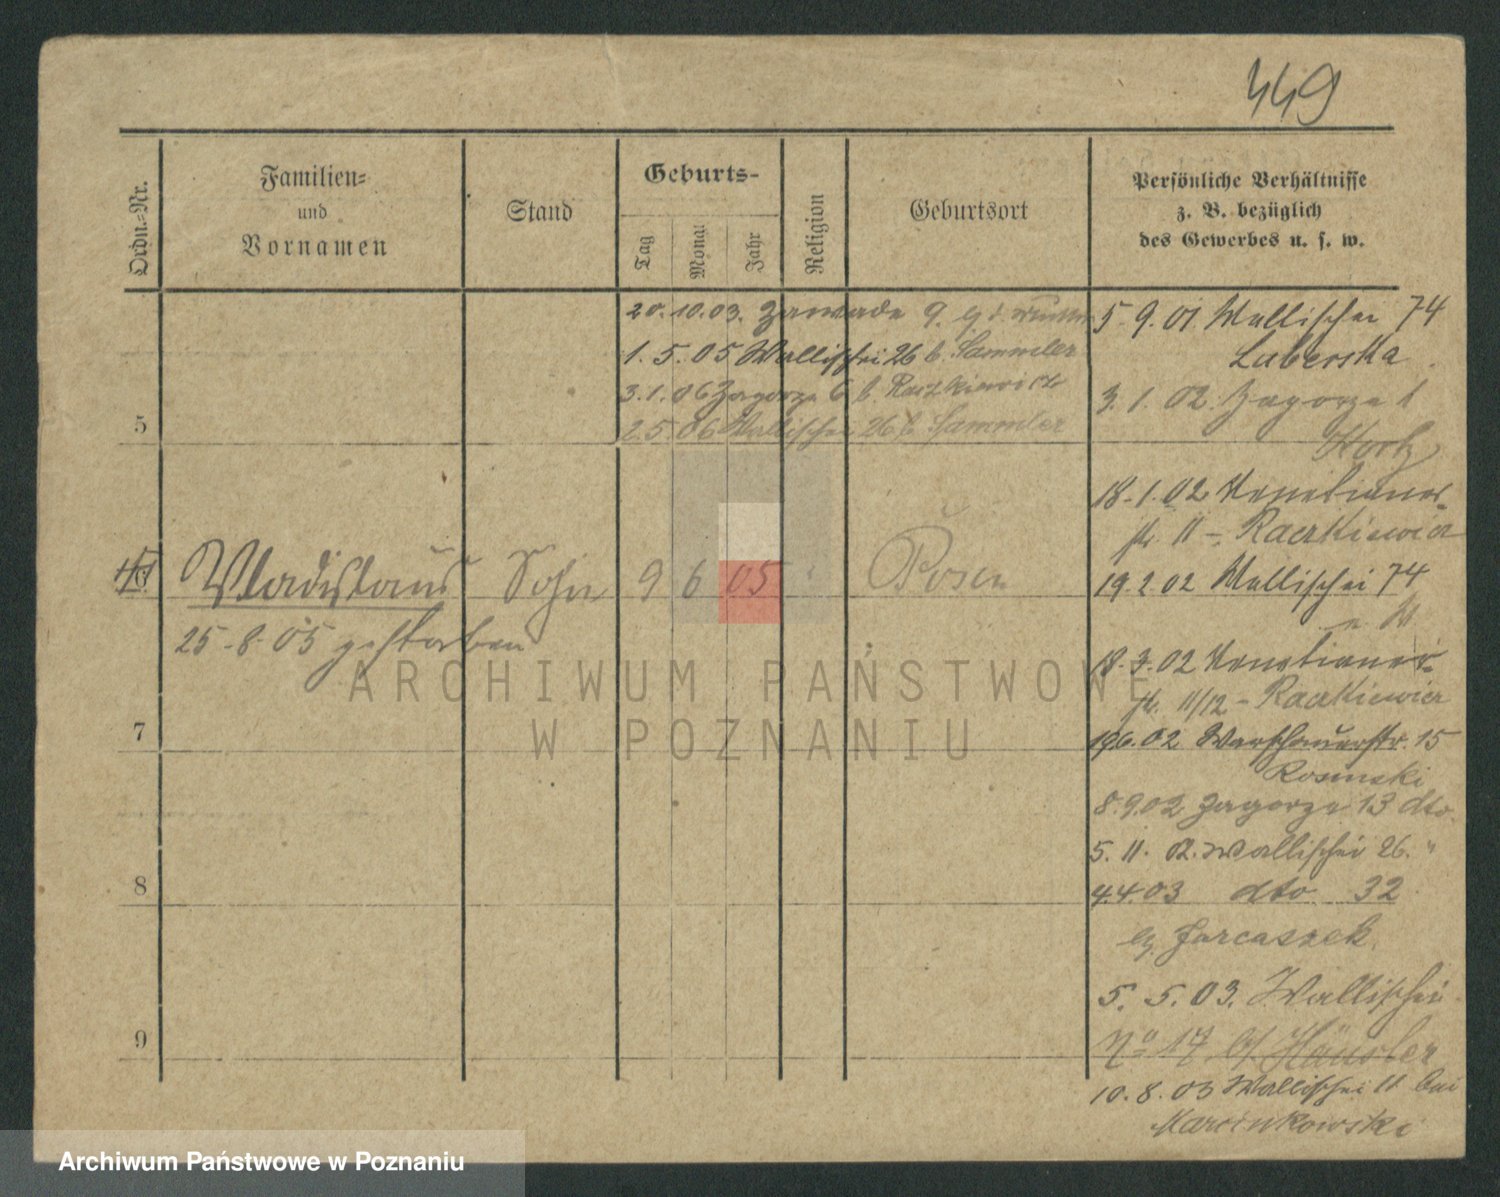 449
Ordn.-Nr.
Familien-
und
Vornamen
Stand
Geburts-
Tag
Monat
Jahr
Religion
Geburtsort
Persönliche Verhältnisse
z. B. bezüglich
des Gewerbes u. s. w.
20. 10. 03. Zawade 9.
1. 5. 05 Wallischei 26 b. Sammler
3. 1. 06 Zagorze 6 b. Raczkiewicz
2 5. 06 Wallischei 26 b. Sammler
5
6
Wladislaus Sohn 9 6 05 Posen
25-8-05 gestorben
7
8
9
5. 9. 01. Wallischei 74
Luberska
3. 1. 02. Zagorze 1
18. 1. 02 Venetianer-
str. 11 - Raczkiewicz
19. 2. 02 Wallischei 74
18. 3. 02 Venetianer-
str. 11/12 - Raczkiewicz
19.6.02 Warschauerstr. 15
Rosinski
8.9.02 Zagorze 13 dto
5. 11. 02. Wallischei 26. "
4.4.03 dto 32
5. 5. 03. Wallischei
No 17 b/ Häusler
10. 8. 03 Wallischei 11 bei
Marcinkowski
ARCHIWUM PAŃSTWOWE
W POZNANIU
Archiwum Państwowe w Poznaniu